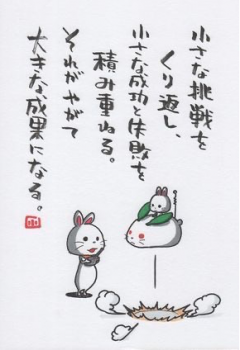 小さな挑戦を
くり返し、
小さな成功と失敗を
積み重ねる。
それが やがて
大きな成果になる。